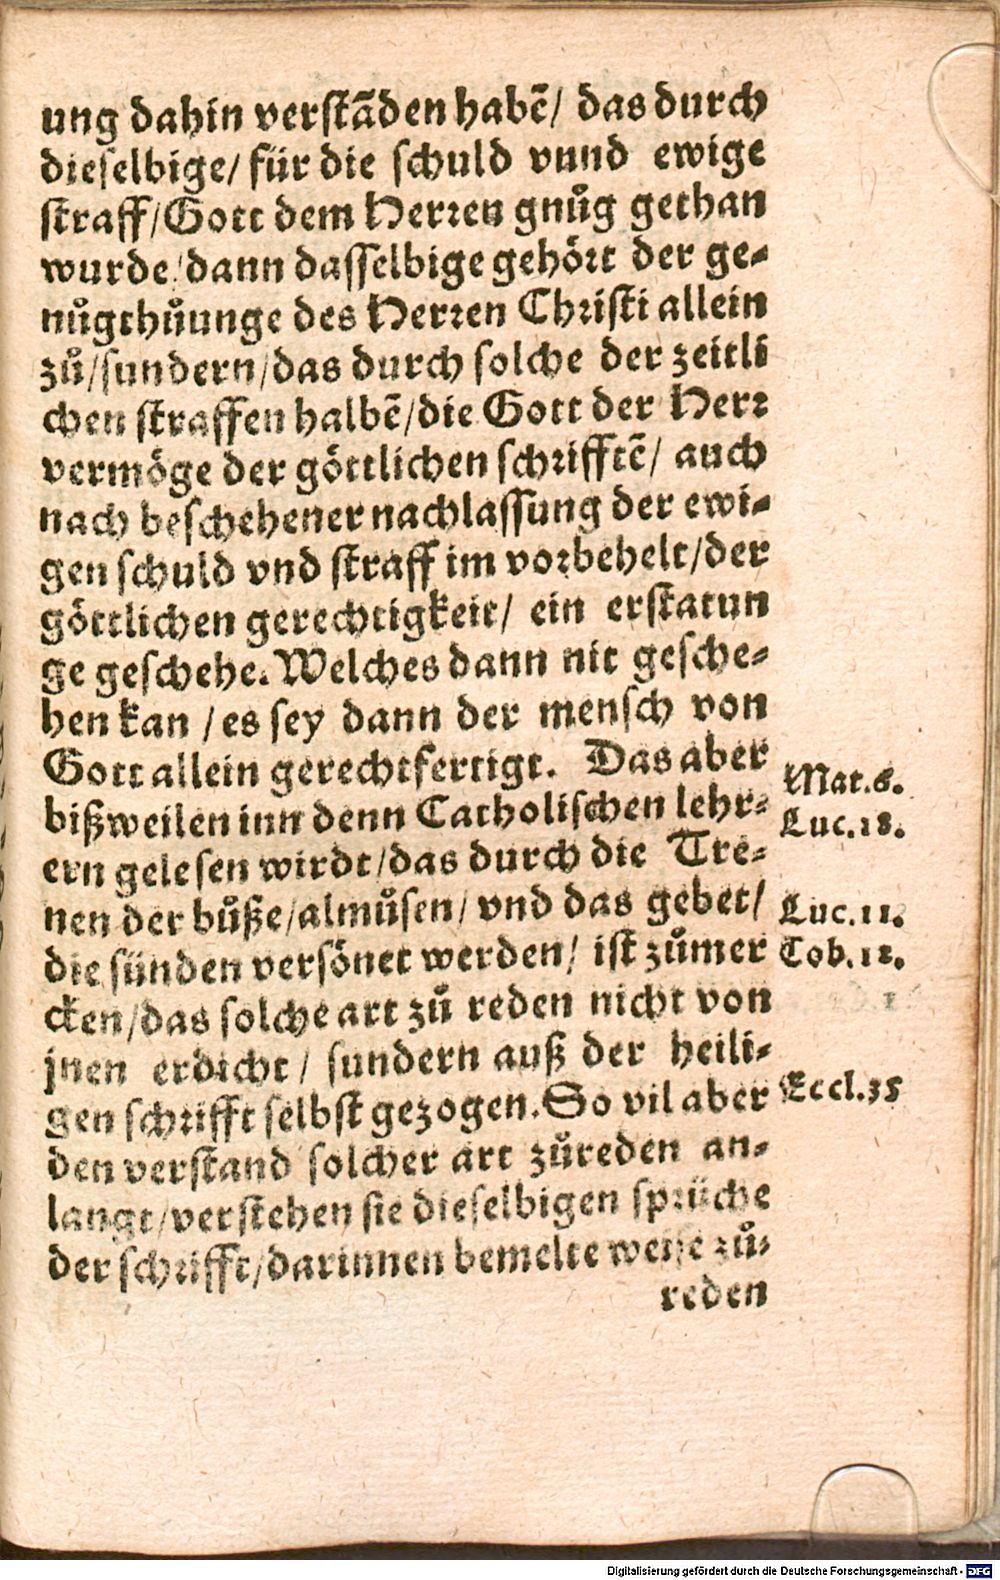 ung dahin verstãden habẽ/ das durch
dieselbige/ für die schuld vnnd ewige
straff/Gott dem Herren gnůg gethan
wurde/dann dasselbige gehört der ge-
nůgthůunge des Herren Christi allein
zů/sundern/das durch solche der zeitli
chen straffen halbẽ/die Gott der Herr
vermöge der göttlichen schrifftẽ/ auch
nach beschehener nachlassung der ewi-
gen schuld vnd straff im vorbehelt/der
göttlichen gerechtigkeit/ ein erstatun
ge geschehe. Welches dann nit gesche-
hen kan / es sey dann der mensch von
Gott allein gerechtfertigt. Das aber
bißweilen inn denn Catholischen lehr-
ern gelesen wirdt/das durch die Tre-
nen der bůße/almůsen/ vnd das gebet/
die sünden versönet werden/ ist zůmer
cken/das solche art zů reden nicht von
jnen erdicht / sundern auß der heili-
gen schrifft selbst gezogen. So vil aber
den verstand solcher art zůreden an-
langt/verstehen sie dieselbigen sprüche
der schrifft/darinnen bemelte weise zů-
reden
Mat.6.
Luc.18.
Luc.11.
Tob.12.
Eccl.35
Digitalisierung gefördert durch die Deutsche Forschungsgemeinschaft - DFG